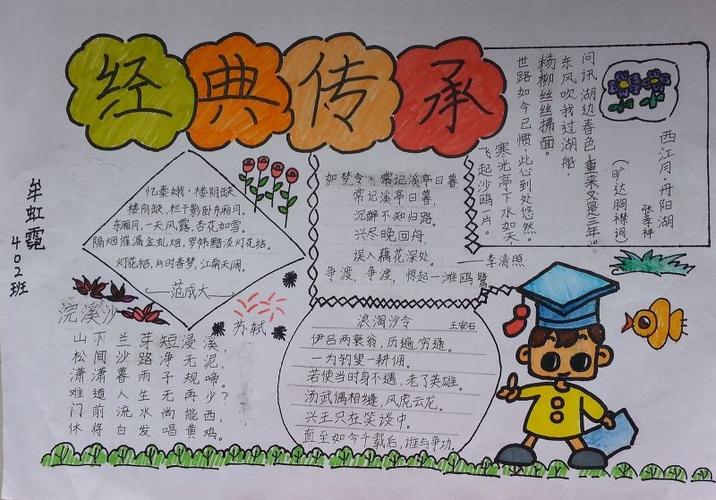 经典传承
牟虹霓
402班
忆秦娥·楼阴缺
楼阴缺,栏干影卧东厢月。
东厢月,一天风露,杏花如雪。
隔烟催漏金虬咽,罗帏黯淡灯花结。
灯花结,片时春梦,江南天阔。
——范成大
如梦令·常记溪亭日暮
常记溪亭日暮,
沉醉不知归路。
兴尽晚回舟,
误入藕花深处。
争渡,争渡,惊起一滩鸥鹭。
——李清照
西江月·丹阳湖
(旷达胸襟词)
张孝祥
问讯湖边春色,重来又是三年。
东风吹我过湖船,
杨柳丝丝拂面。
世路如今已惯,此心到处悠然。
寒光亭下水如天,
飞起沙鸥一片。
浣溪沙
苏轼
山下兰芽短浸溪,
松间沙路净无泥,
潇潇暮雨子规啼。
难道人生无再少?
门前流水尚能西,
休将白发唱黄鸡。
浪淘沙令
王安石
伊吕两衰翁,历遍穷通。
一为钓叟一耕佣。
若使当时身不遇,老了英雄。
汤武偶相逢,风虎云龙。
兴王只在笑谈中。
直至如今千载后,谁与争功。